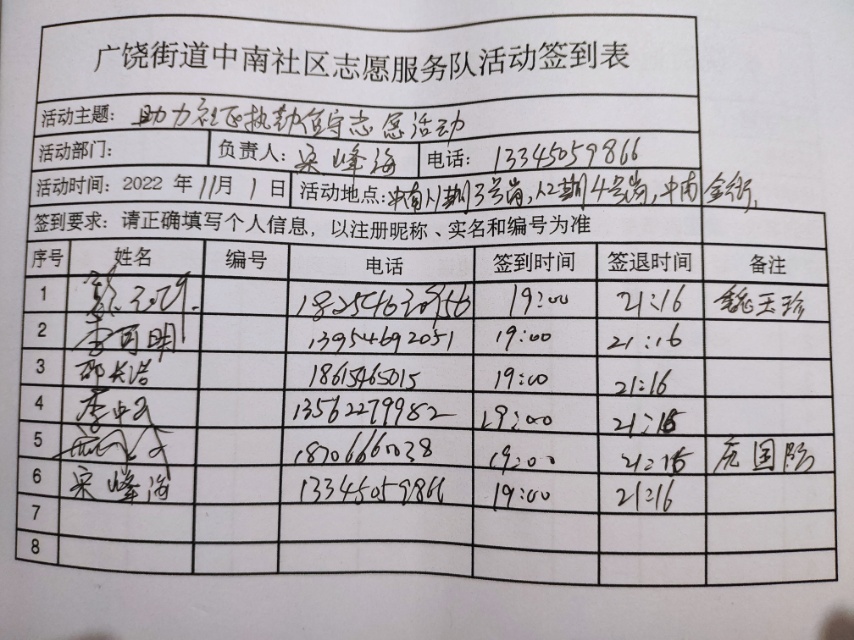 广饶街道中南社区志愿服务队活动签到表
活动主题: 助力社区执勤值守志愿活动
活动部门: 负责人: 宋峰海 电话: 13345059866
活动时间: 2022 年 11月 1 日 活动地点: 中南人1期3号岗, 人2期4号岗, 中南金街,
签到要求: 请正确填写个人信息，以注册昵称、实名和编号为准
序号 姓名 编号 电话 签到时间 签退时间 备注
1 19:00 21:16 魏玉珍
2 明 13954692051 19:00 21:16
3 邵长浩 18615465015 19:00 21:16
4 李 13562279982 19:00 21:16
5 19:00 21:16 庞国防
6 宋峰海 13345059866 19:00 21:16
7
8